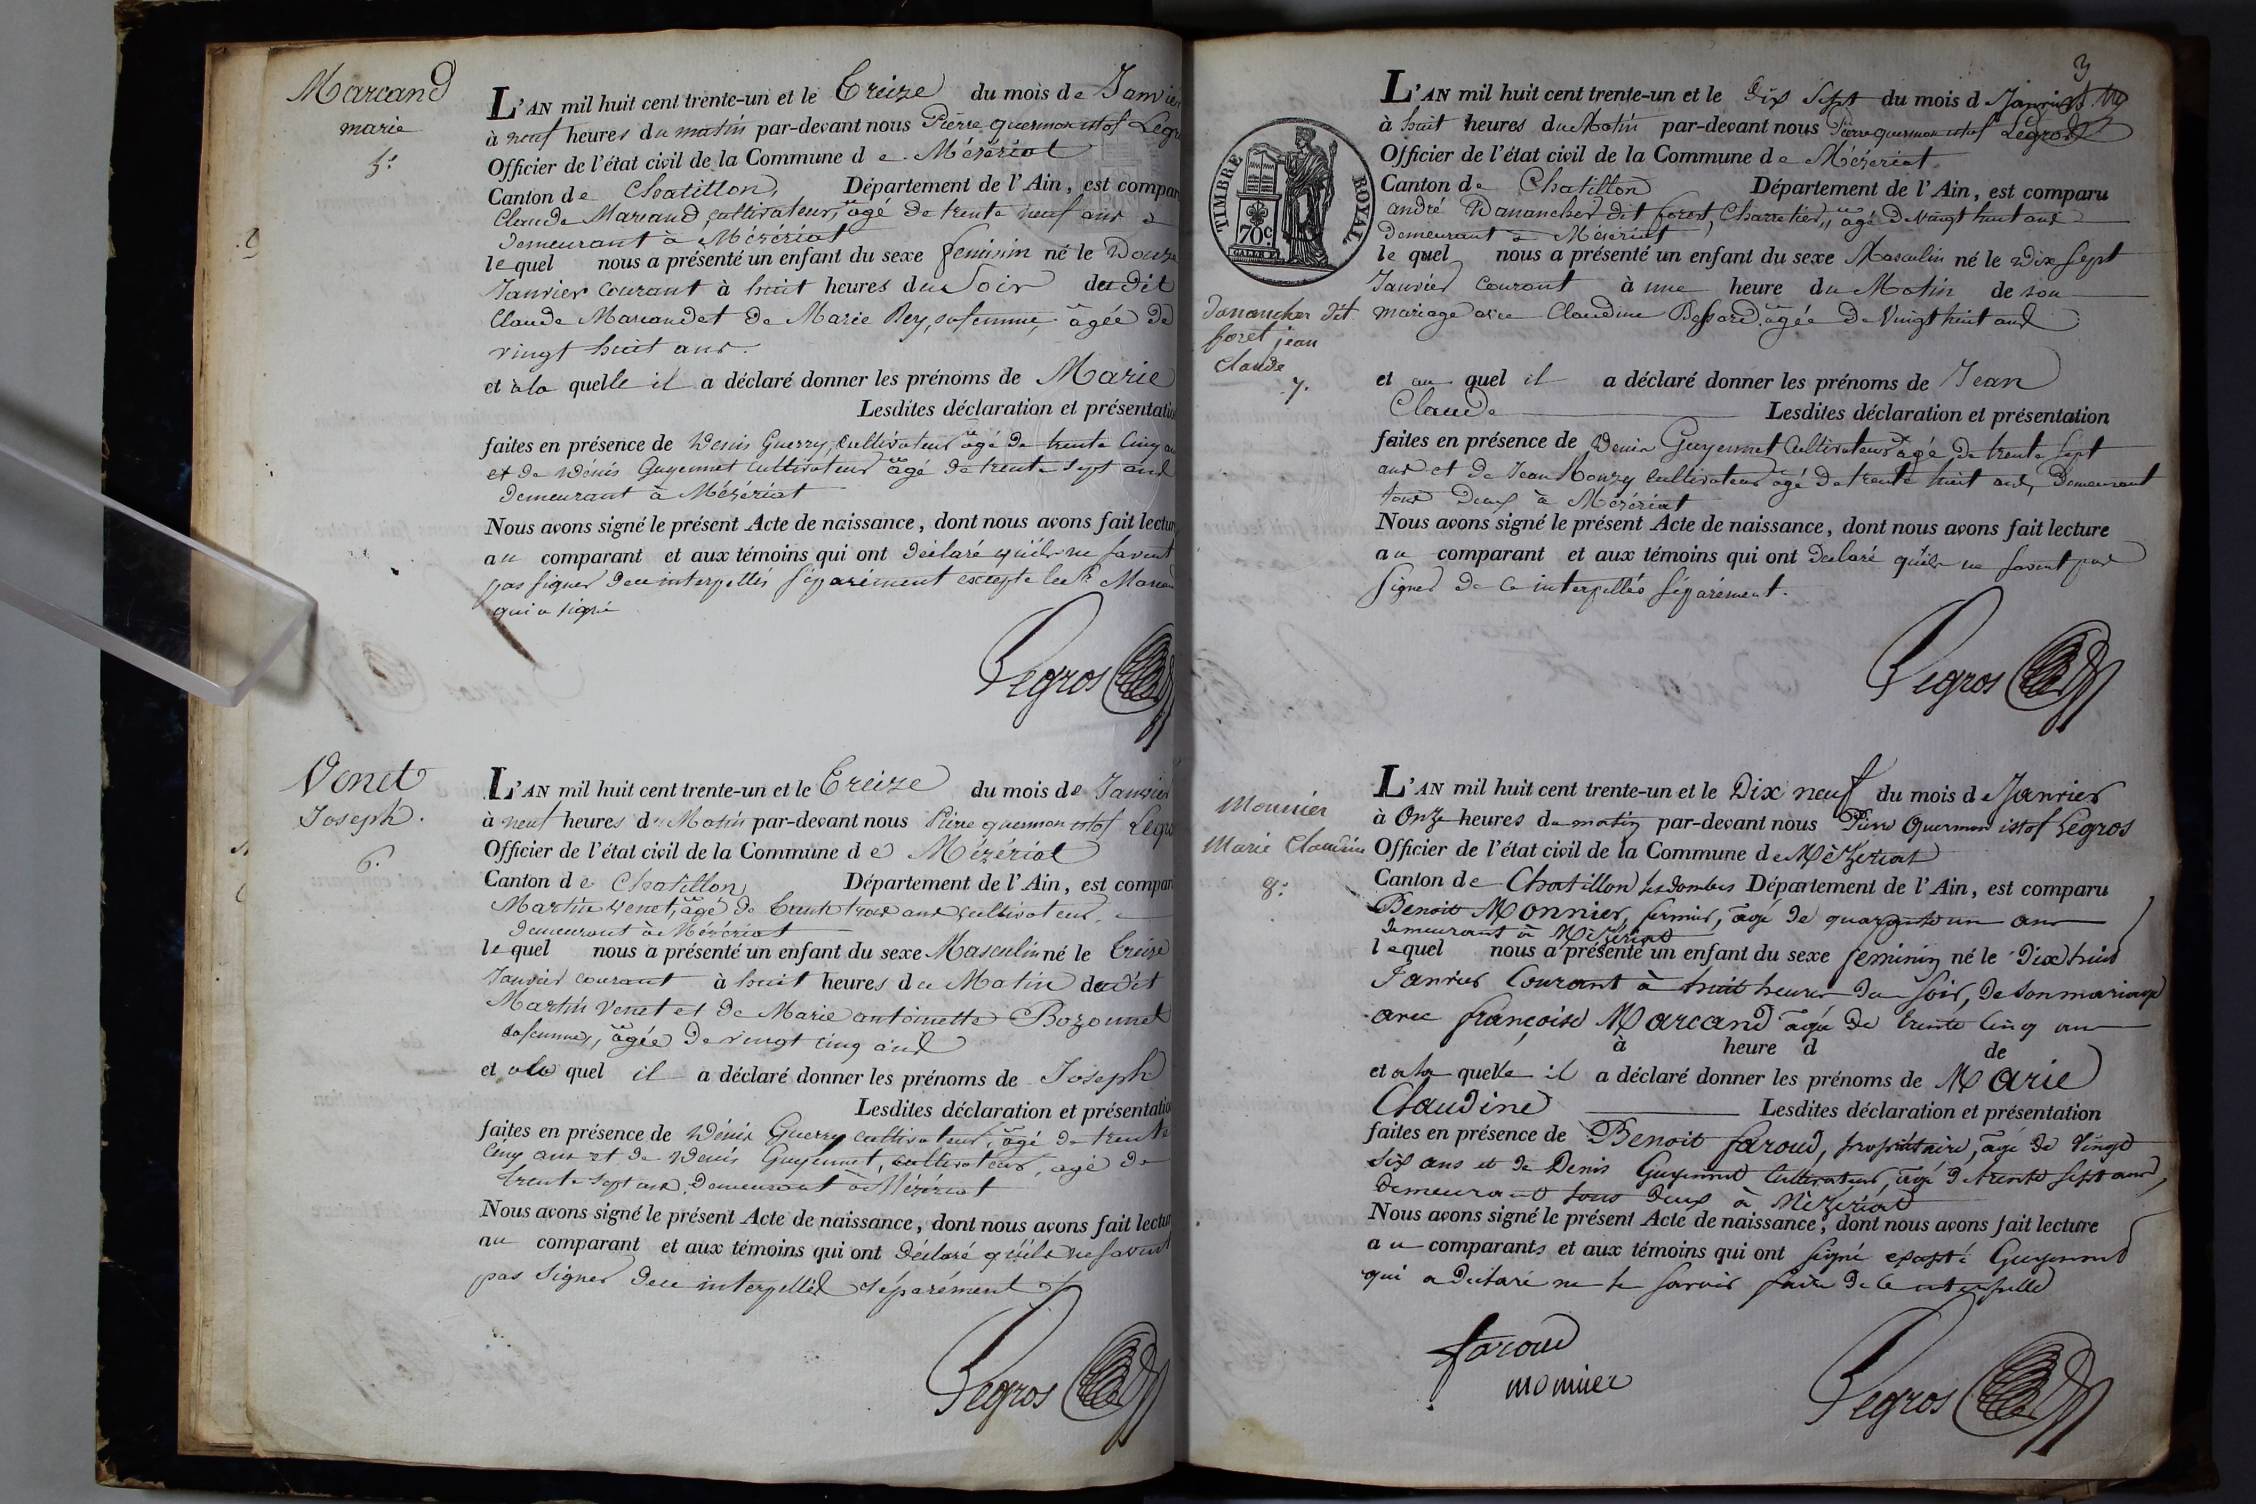 Marcand
marie
5.
L'AN mil huit cent trente-un et le Treize du mois de Janvier
à neuf heures du matin par-devant nous Pierre quermon istof Legros
Officier de l'état civil de la Commune de Mézériat
Canton de Chatillon, Département de l'Ain, est comparu
Claude Marcand, cultivateur, agé de trente neuf ans
demeurant à Mézériat
lequel nous a présenté un enfant du sexe feminin né le Douze
Janvier courant à huit heures du Soir dudit
Claude Marcand et de Marie Rey, sa femme, agée de
vingt huit ans.
et à la quelle il a déclaré donner les prénoms de Marie
Lesdites déclaration et présentation
faites en présence de Denis Guerry, cultivateur agé de trente cinq ans
et de Dénis Guyennet cultivateur agé de trente sept ans
demeurant à Mézériat
Nous avons signé le présent Acte de naissance, dont nous avons fait lecture
au comparant et aux témoins qui ont déclaré qu'ils ne savent
pas signer de ce interpellés séparément excepté led. Marcand
qui a signé
Legros
Venet
Joseph.
6.
L'AN mil huit cent trente-un et le Treize du mois de Janvier
à neuf heures du Matin par-devant nous Pierre quermon istof Legros
Officier de l'état civil de la Commune de Mézériat
Canton de Chatillon Département de l'Ain, est comparu
Martin Venet, agé de trente trois ans cultivateur,
demeurant à Mézériat
lequel nous a présenté un enfant du sexe Masculin né le treize
Janvier courant à huit heures du Matin dudit
Martin Venet et de Marie antoinette Bozonnet
sa femme, agée de vingt cinq ans
et quel il a déclaré donner les prénoms de Joseph
Lesdites déclaration et présentation
faites en présence de Dénis Guerry cultivateur, agé de trente
cinq ans et de Denis Guyennet, cultivateur, agé de
trente sept ans, demeurant à Mézériat
Nous avons signé le présent Acte de naissance, dont nous avons fait lecture
au comparant et aux témoins qui ont déclaré qu'ils ne savent
pas signer de ce interpellés séparément
Legros
3
TIMBRE ROYAL
70c
L'AN mil huit cent trente-un et le dix sept du mois d Janvier
à huit heures du Matin par-devant nous Pierre quermon istof Legros
Officier de l'état civil de la Commune de Mézériat
Canton de Chatillon Département de l'Ain, est comparu
andré Danancher dit foret, Charretier, agé de vingt huit ans
demeurant à Mézériat
lequel nous a présenté un enfant du sexe Masculin né le dix sept
Janvier courant à une heure du Matin de son
Danancher dit
foret jean
Claude
7.
mariage avec Claudine Bessard agée de Vingt huit ans
et au quel il a déclaré donner les prénoms de Jean
Claude Lesdites déclaration et présentation
faites en présence de Denis Guyennet Cultivateur agé de trente sept
ans et de Jean cultivateur agé de trente huit ans, Demeurant
tous deux à Mézériat
Nous avons signé le présent Acte de naissance, dont nous avons fait lecture
au comparant et aux témoins qui ont déclaré qu'ils ne savent pas
signer de ce interpellés séparément.
Legros
Monnier
Marie Claudine
8.
L'AN mil huit cent trente-un et le Dix neuf du mois de Janvier
à Onze heures du matin par-devant nous Pierre Quermon istof Legros
Officier de l'état civil de la Commune de Mèzériat
Canton de Chatillon les dombes Département de l'Ain, est comparu
Benoit Monnier, fermier, agé de quarante un ans
demeurant à Mèzériat
lequel nous a présenté un enfant du sexe feminin né le Dix huit
Janvier Courant à huit heures du soir, de son mariage
avec françoise Marcand agée de trente cinq ans
à heure d de
et a la quelle il a déclaré donner les prénoms de Marie
Claudine Lesdites déclaration et présentation
faites en présence de Benoit faroud, propriétaire, agé de Vingt
six ans et de Denis Guyennet Cultivateur, agé de trente sept ans,
demeurant tous deux à Mèzériat
Nous avons signé le présent Acte de naissance, dont nous avons fait lecture
au comparants et aux témoins qui ont signé excepté Guyennet
qui a déclaré ne le savoir faire de ce interpellé
faroud
monnier
Legros